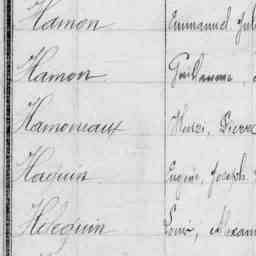 Hamon Emmanuel Jul
Hamon Guillaume,
Hamoneaux Henri, Pierre
Haquin Eugène, Joseph
Heleguin Louis, Alexan